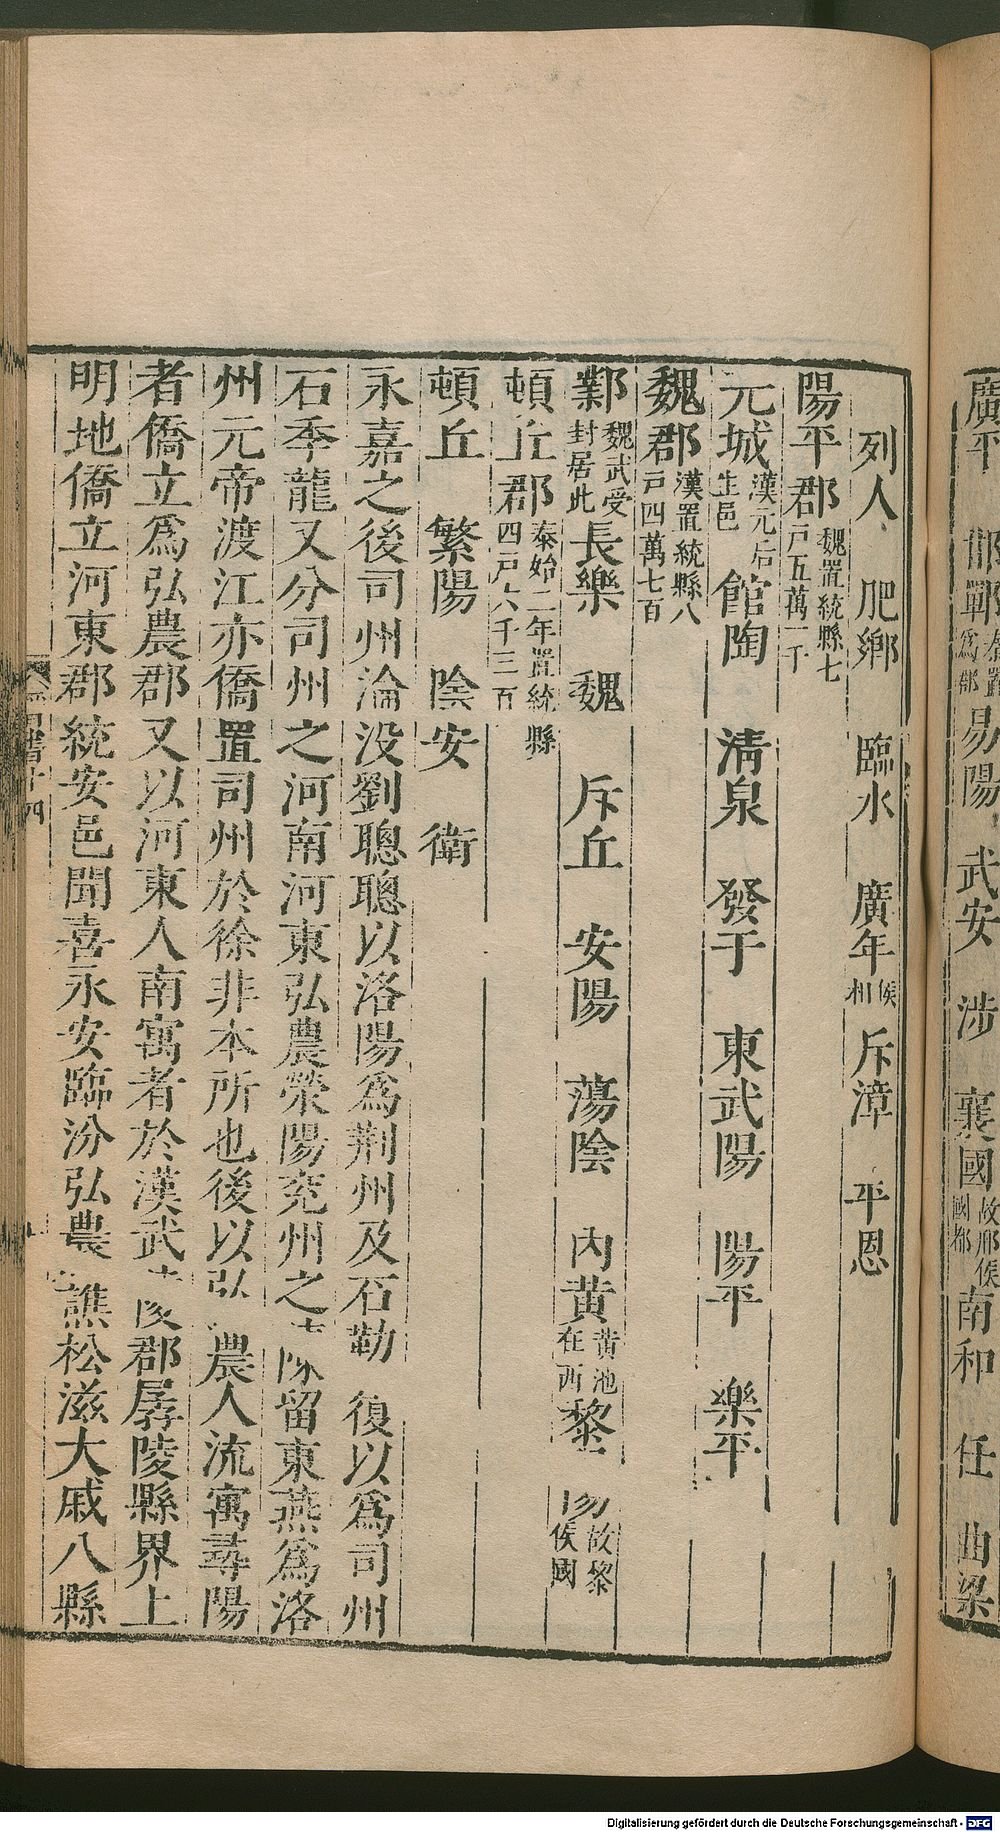 廣平　邯鄲秦置為郡　易陽　武安　涉　襄國故邢侯國都　南和　任　曲梁
列人　肥鄉　臨水　廣年侯相　斥漳　平恩
陽平郡魏置統縣七戶五萬一千
元城漢元后生邑　館陶　清泉　發干　東武陽　陽平　樂平
魏郡漢置統縣八戶四萬七百
鄴魏武受封居此　長樂　魏　斥丘　安陽　蕩陰　內黃黃池在西　黎故黎侯國
頓丘郡泰始二年置統縣四戶六千三百
頓丘　繁陽　陰安　衛
永嘉之後司州淪沒劉聰聰以洛陽為荆州及石勒復以為司州
石季龍又分司州之河南河東弘農滎陽兖州之陳留東燕為洛
州元帝渡江亦僑置司州於徐非本所也後以弘農人流寓尋陽
者僑立為弘農郡又以河東人南寓者於漢武陵郡孱陵縣界上
明地僑立河東郡統安邑聞喜永安臨汾弘農譙松滋大戚八縣
Digitalisierung gefördert durch die Deutsche Forschungsgemeinschaft - DFG